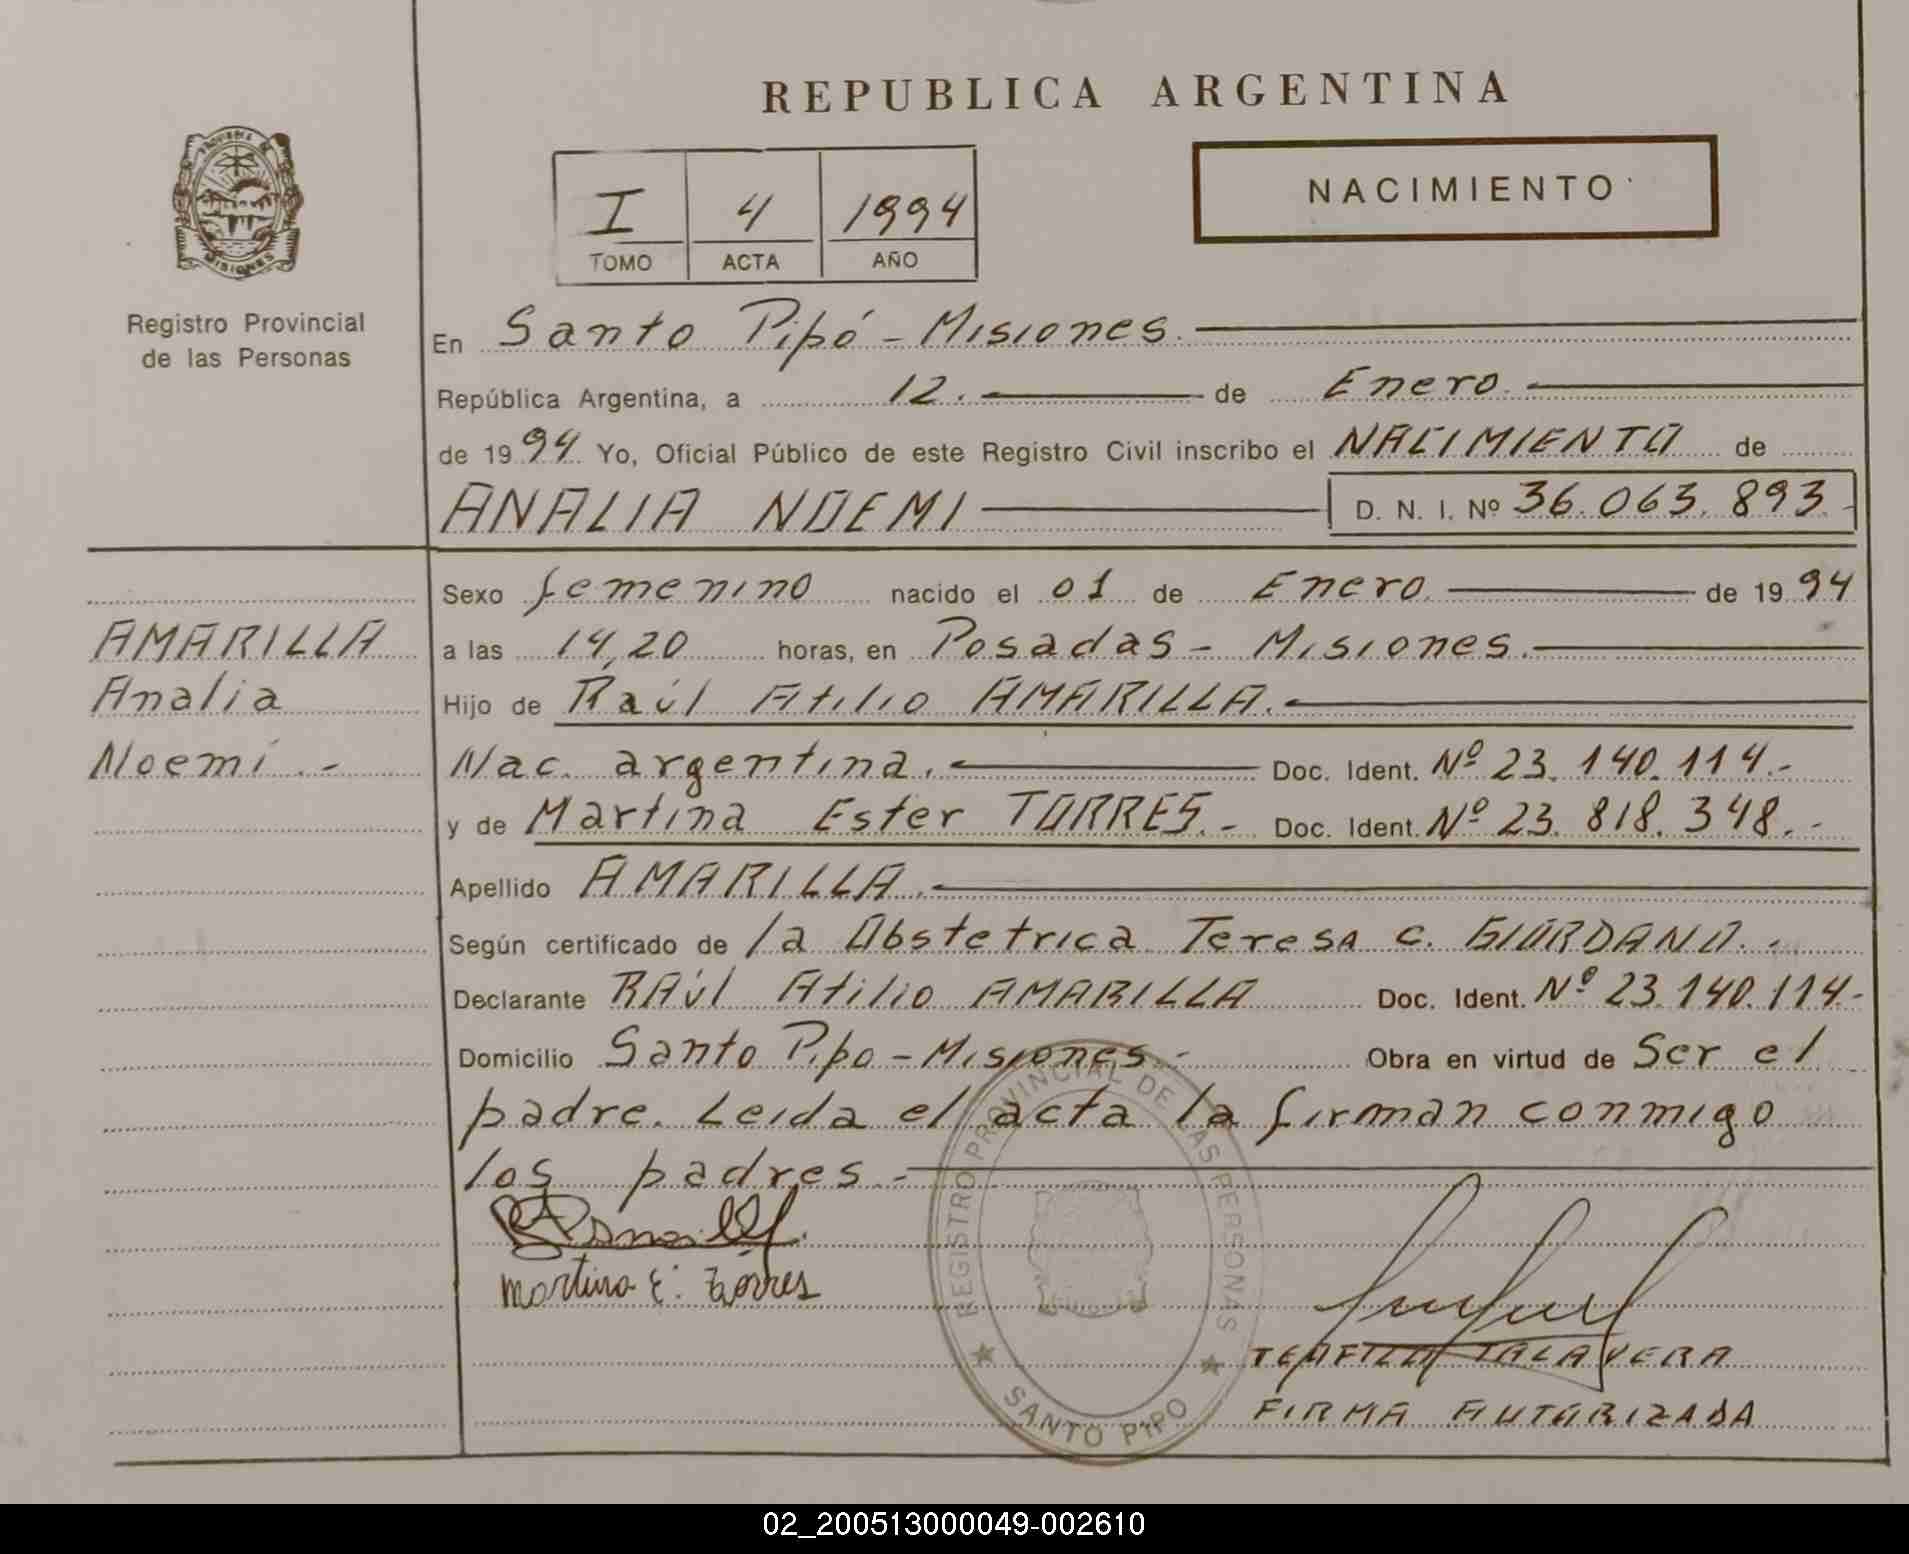 REPUBLICA ARGENTINA
PROVINCIA DE
MISIONES
Registro Provincial
de las Personas
I 4 1994
TOMO ACTA AÑO
NACIMIENTO
En Santo Pipó - Misiones.
República Argentina, a 12. de Enero.
de 1994 Yo, Oficial Público de este Registro Civil inscribo el NACIMIENTO de
ANALIA NOEMI D. N. I. Nº 36.063.893.-
AMARILLA
Analia
Noemí.-
Sexo femenino nacido el 01 de Enero. de 1994
a las 14,20 horas, en Posadas - Misiones.
Hijo de Raúl Atilio AMARILLA.
Nac. argentina. Doc. Ident. Nº 23.140.114.-
y de Martina Ester TORRES.- Doc. Ident. Nº 23.818.348.-
Apellido AMARILLA.
Según certificado de la Obstetrica Teresa C. GIORDANO.-
Declarante RAúl Atilio AMARILLA Doc. Ident. Nº 23.140.114.-
Domicilio Santo Pipo - Misiones.- Obra en virtud de Ser el
padre. Leida el acta la firman conmigo
los padres.-
Martina E. Torres
REGISTRO PROVINCIAL DE LAS PERSONAS
SANTO PIPO
TEOFILO TALAVERA
FIRMA AUTORIZADA
02_200513000049-002610